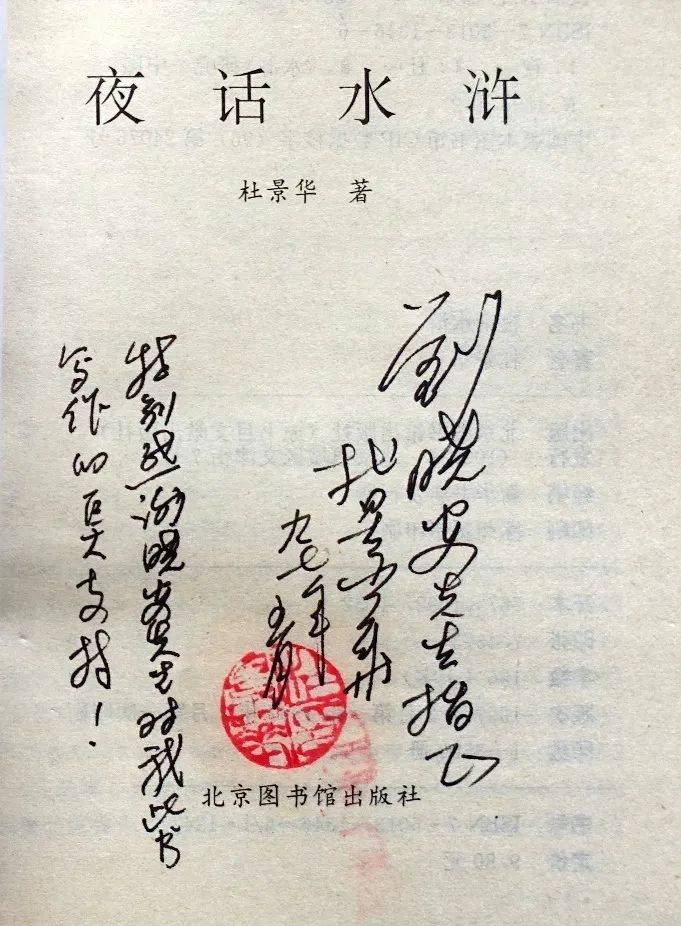 夜话水浒
杜景华 著
刘晓安先生指正
杜景华
九七年五月
特别感谢晓安先生对我此书
写作的巨大支持！
北京图书馆出版社